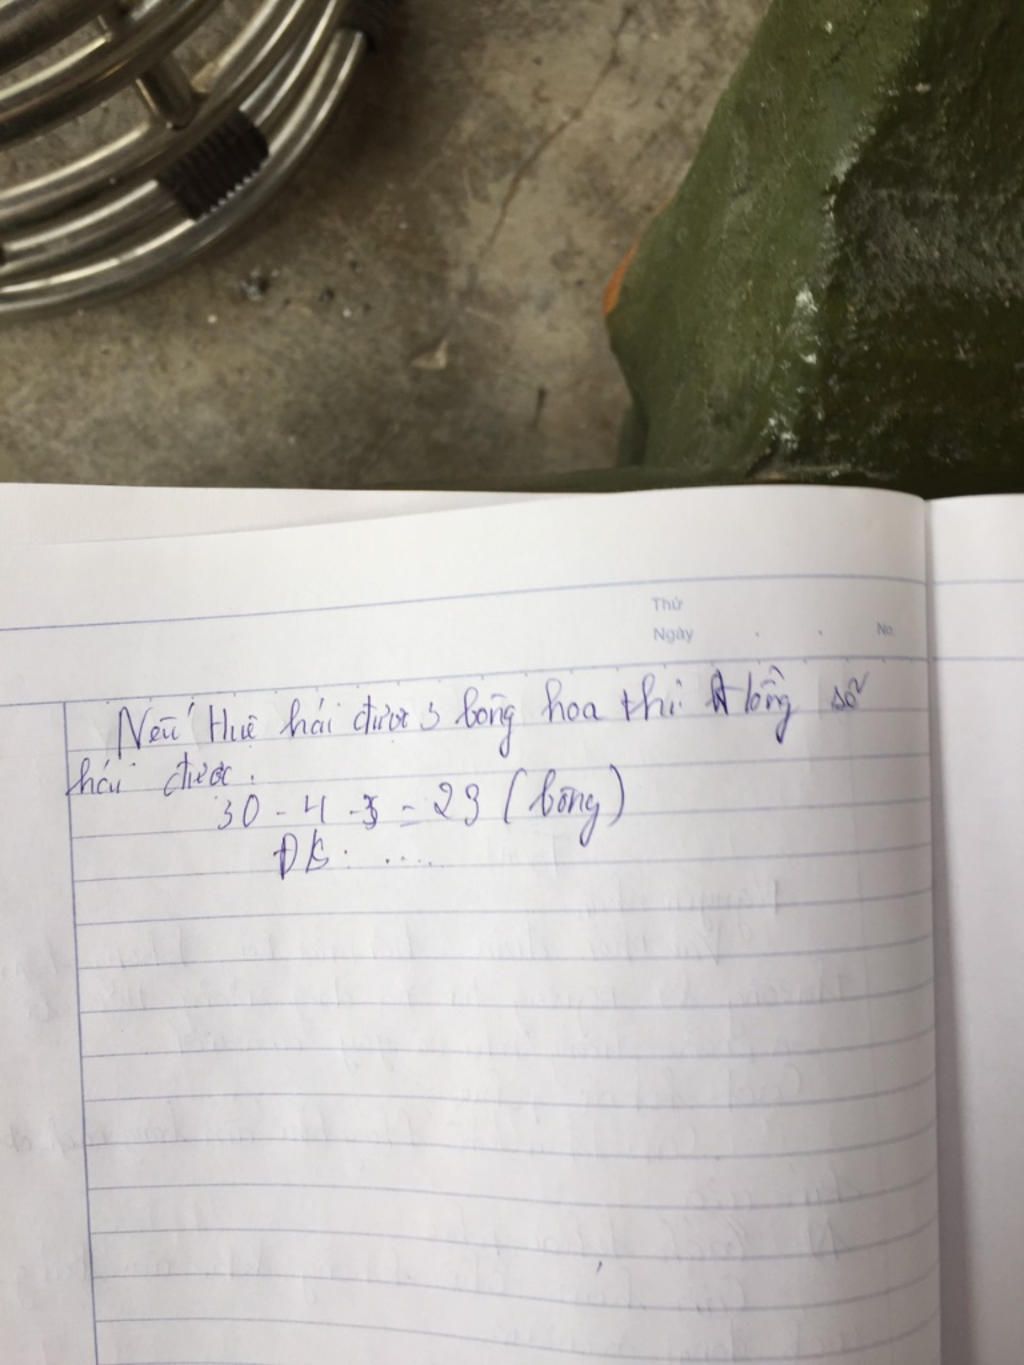 Thứ
Ngày . . No.
Nếu Huệ hái được 3 bông hoa thì tổng số
hái được.
30 - 4 - 3 = 23 (bông)
ĐS: ....